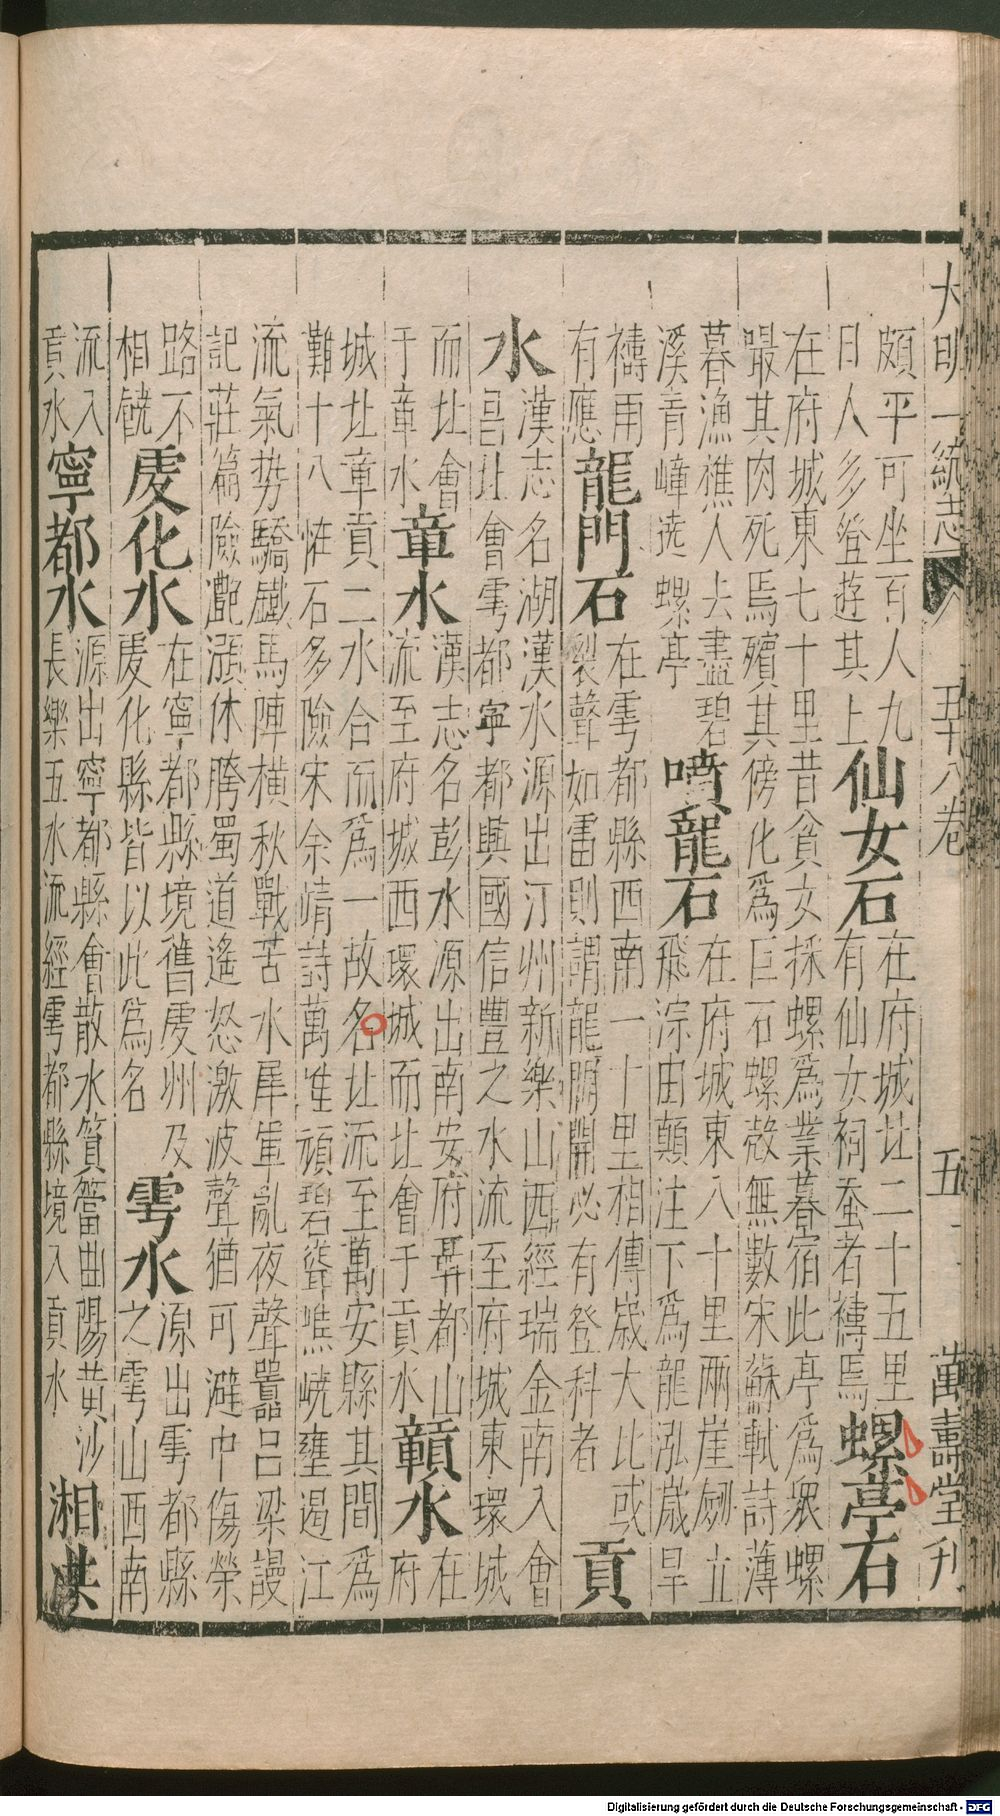 大明一統志 五十八卷 五 萬壽堂刋
頗平可坐百人九
日人多登遊其上
仙女石
在府城北二十五里
有仙女祠蚕者禱焉
螺亭石
在府城東七十里昔貧女採螺爲業暮宿此亭爲衆螺
嘬其肉死焉殯其傍化爲巨石螺殼無數宋蘇軾詩薄
暮漁樵人去盡碧
溪青嶂遶螺亭
噴龍石
在府城東八十里兩崖劒立
飛淙由顛注下爲龍泓歲旱
禱用
有應
龍門石
在雩都縣西南一十里相傳歲大比或
裂聲如雷則謂龍門開必有登科者
貢
水
漢志名湖漢水源出汀州新樂山西經瑞金南入會
昌北會雩都寧都興國信豐之水流至府城東環城
而北會
于章水
章水
漢志名彭水源出南安府聶都山
流至府城西環城而北會于貢水
贛水
在
府
城北章貢二水合而爲一故名北流至萬安縣其間爲
難十八恠石多險宋余靖詩萬堆頑碧聳嶕嶢壅遏江
流氣势驕鐵馬陣橫秋戰苦水犀軍亂夜聲囂呂梁謾
記莊篇險灔澦休誇蜀道遙怒激波聲猶可避中傷榮
路不
相饒
虔化水
在寧都縣境舊虔州及
虔化縣皆以此爲名
雩水
源出雩都縣
之雩山西南
流入
貢水
寧都水
源出寧都縣會散水簹曲陽黄沙
長樂五水流經雩都縣境入貢水
湘洪
Digitalisierung gefördert durch die Deutsche Forschungsgemeinschaft - DFG